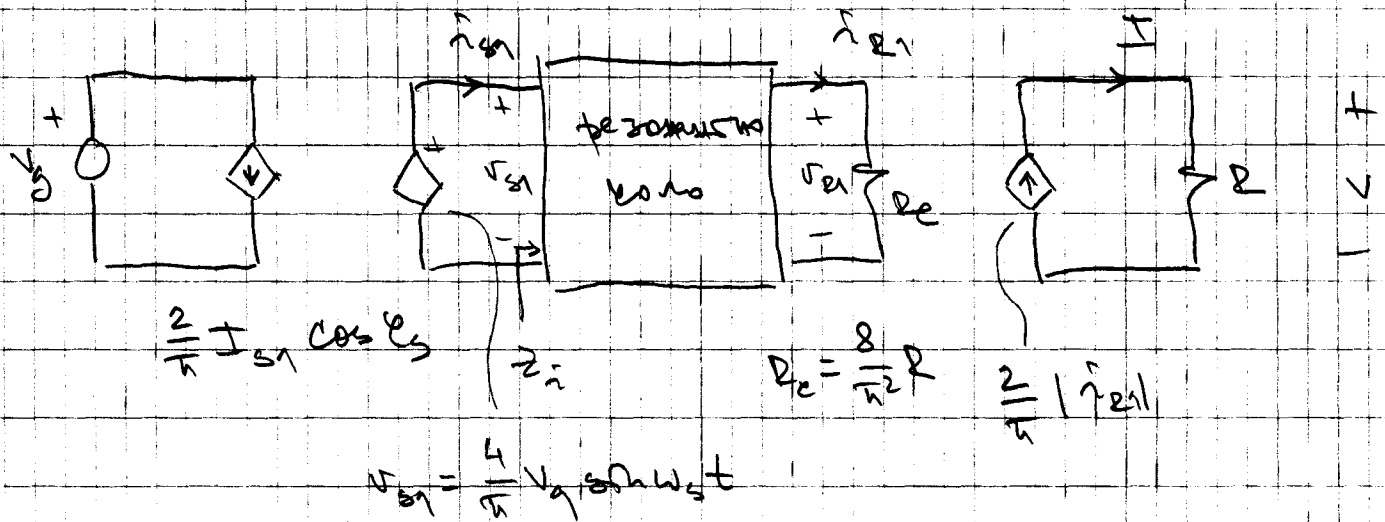 i_{s1}
i_{R1}
I
+ + + +
V_g
v_{s1}
резонантно
коло
v_{R1}
R_e
R
V
− − −
\frac{2}{π} I_{s1} cos φ_s
Z_i
R_e = \frac{8}{π^2} R
\frac{2}{π} |i_{R1}|
v_{s1} = \frac{4}{π} V_g sin ω_s t